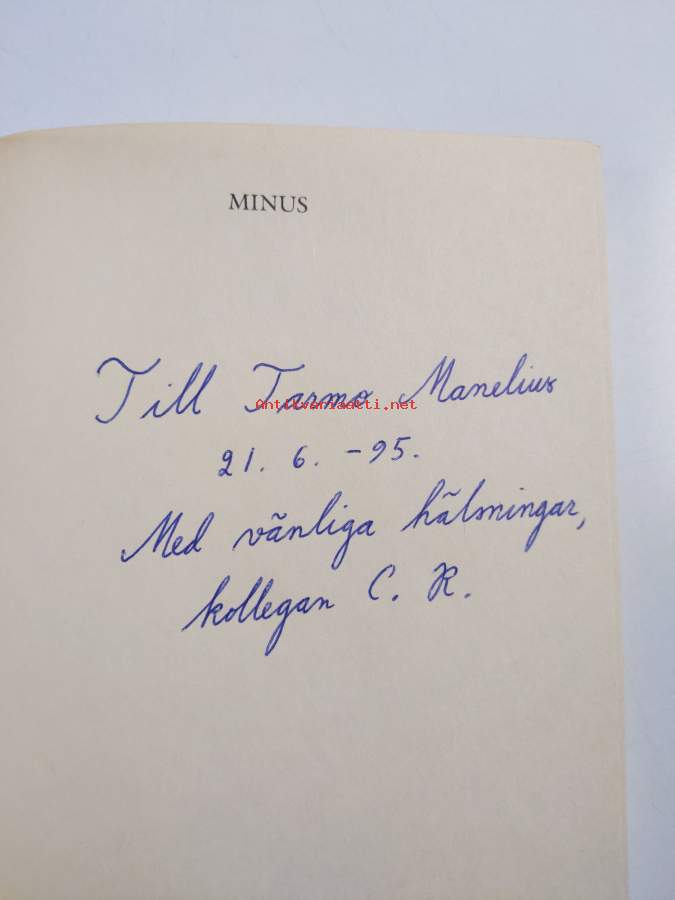 MINUS
Till Tarmo Manelius
Antikvariaatti.net
21. 6. -95.
Med vänliga hälsningar,
kollegan C. R.